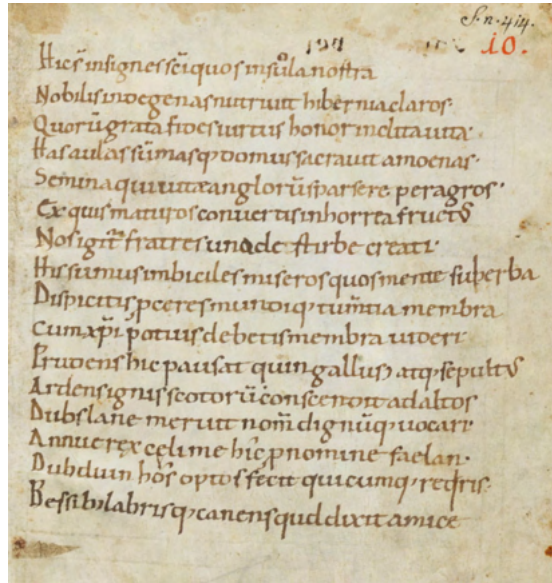 S. n. 414.
10.
Hic s̄ insignes sc̄i quos insula nostra
Nobilis indegenas nutriuit hibernia claros·
Quorū grata fides uirtus honor inclita uita·
Has aulas sūmas q; domus sacrauit amoenas·
Semina qui uitæ anglorū sparsere per agros·
Ex quis maturos conuertis in horrea fruct᷒
Nos igit̄ fratres una de stirbe creati·
His sumus imbiciles miseros quos mente superba
Dispicitis p̱ceres mundiq; tum̄tia membra
Cum xp̄i potuis debetis membra uideri
Prudens hic pausat quin gallus atq; sepult᷒
Ardens ignis scotorū conscendit ad altos
Dubslane meruit nom̄ dignūq; uocari
Annue rex cęli me hic ꝓ nomine faelan·
Dubduin hos opto s fecit quicumq; reqris·
Bessibilabrisq; canens quod dixit amice